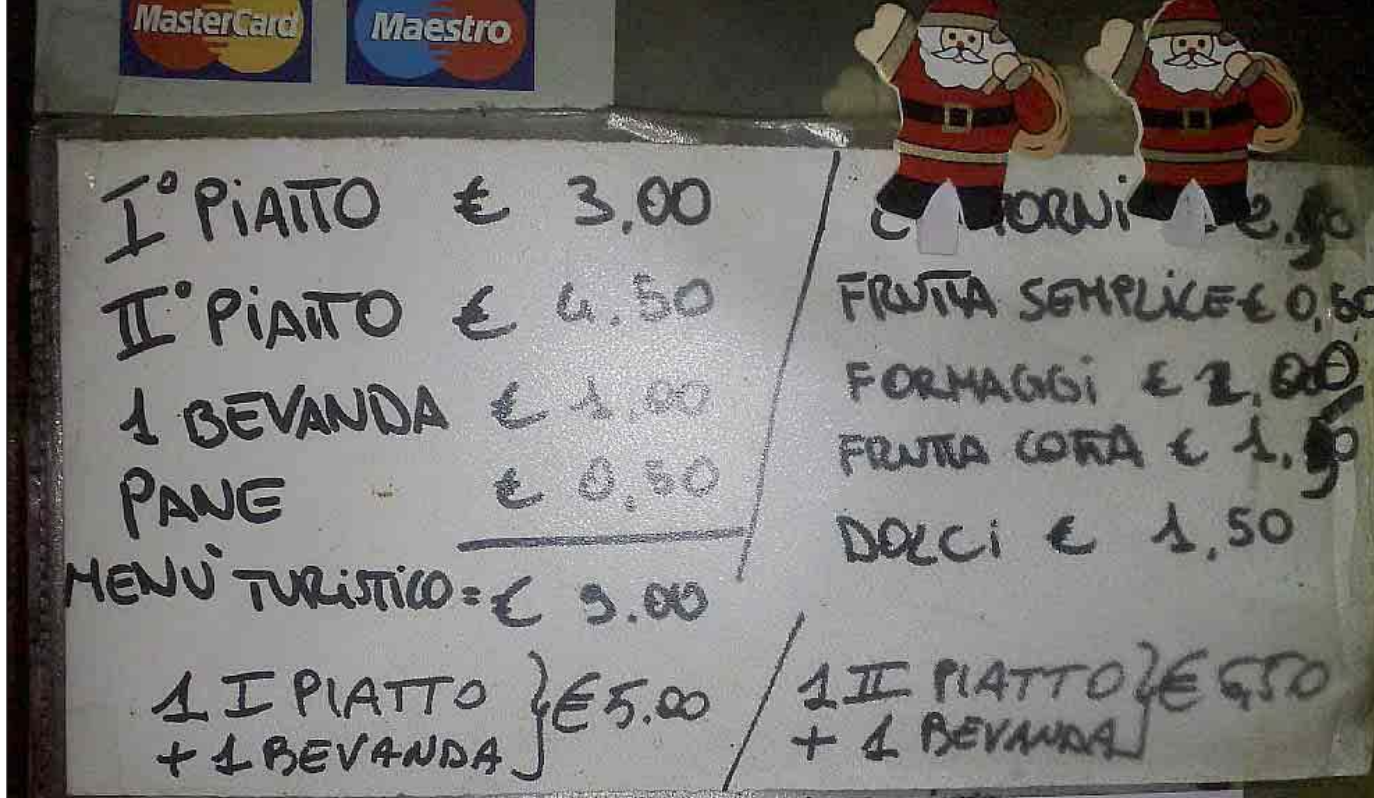 MasterCard
Maestro
I° PIATTO € 3,00
II° PIATTO € 4.50
1 BEVANDA € 1,00
PANE € 0,50
MENÙ TURISTICO = € 9.00
1 I PIATTO
+ 1 BEVANDA } € 5.00
FRUTTA SEMPLICE € 0,50
FORMAGGI €
FRUTTA COTTA € 1.50
DOLCI € 1,50
1 II PIATTO
+ 1 BEVANDA } € 6,50